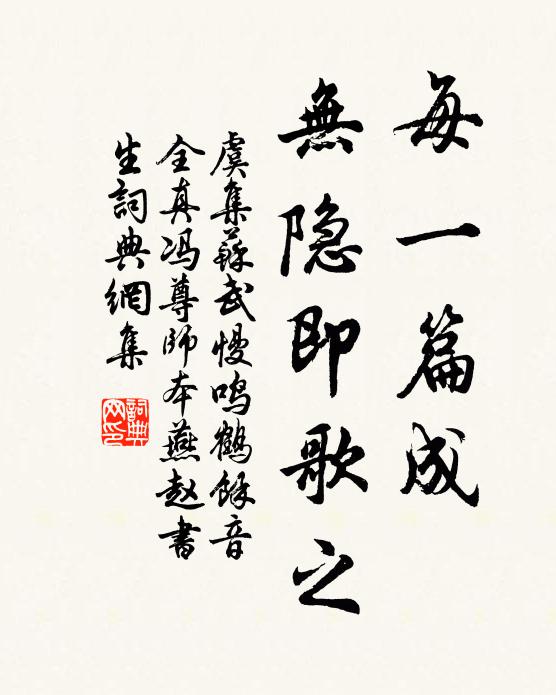 每一篇成
無隐即歌之
虞集蘇武慢鸣鶴餘音
全真冯尊師本燕赵書
生詞典網集
詞典
网印